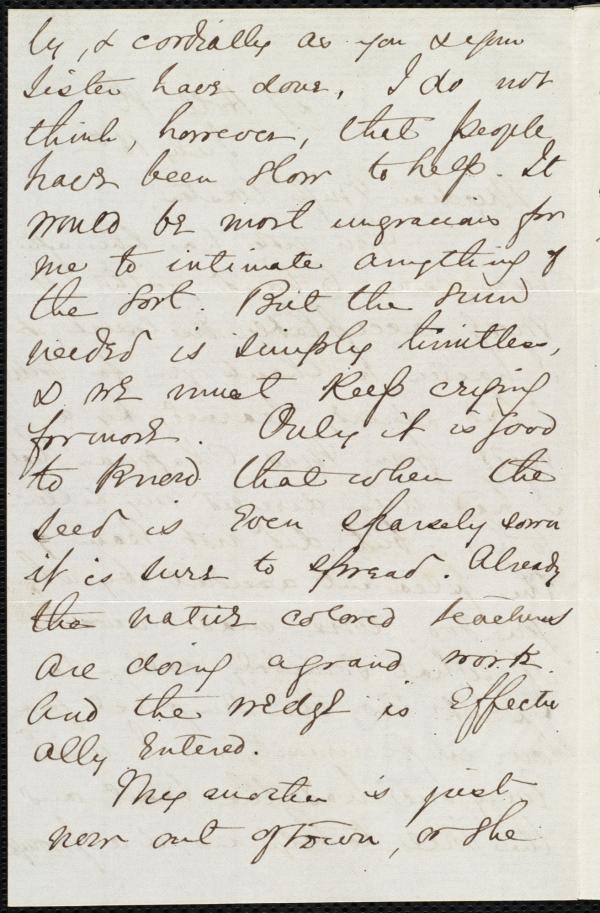 ly, & cordially as you & your
sister have done. I do not
think, however, that people
have been slow to help. It
would be most ungracious for
me to intimate anything of
the sort. But the sum
needed is simply limitless,
& we must keep crying
for more. Only it is good
to know that when the
seed is even sparsely sown
it is sure to spread. Already
the native colored teachers
are doing a grand work
and the wedge is effectu
ally entered.
My mother is just
now out of town, or she